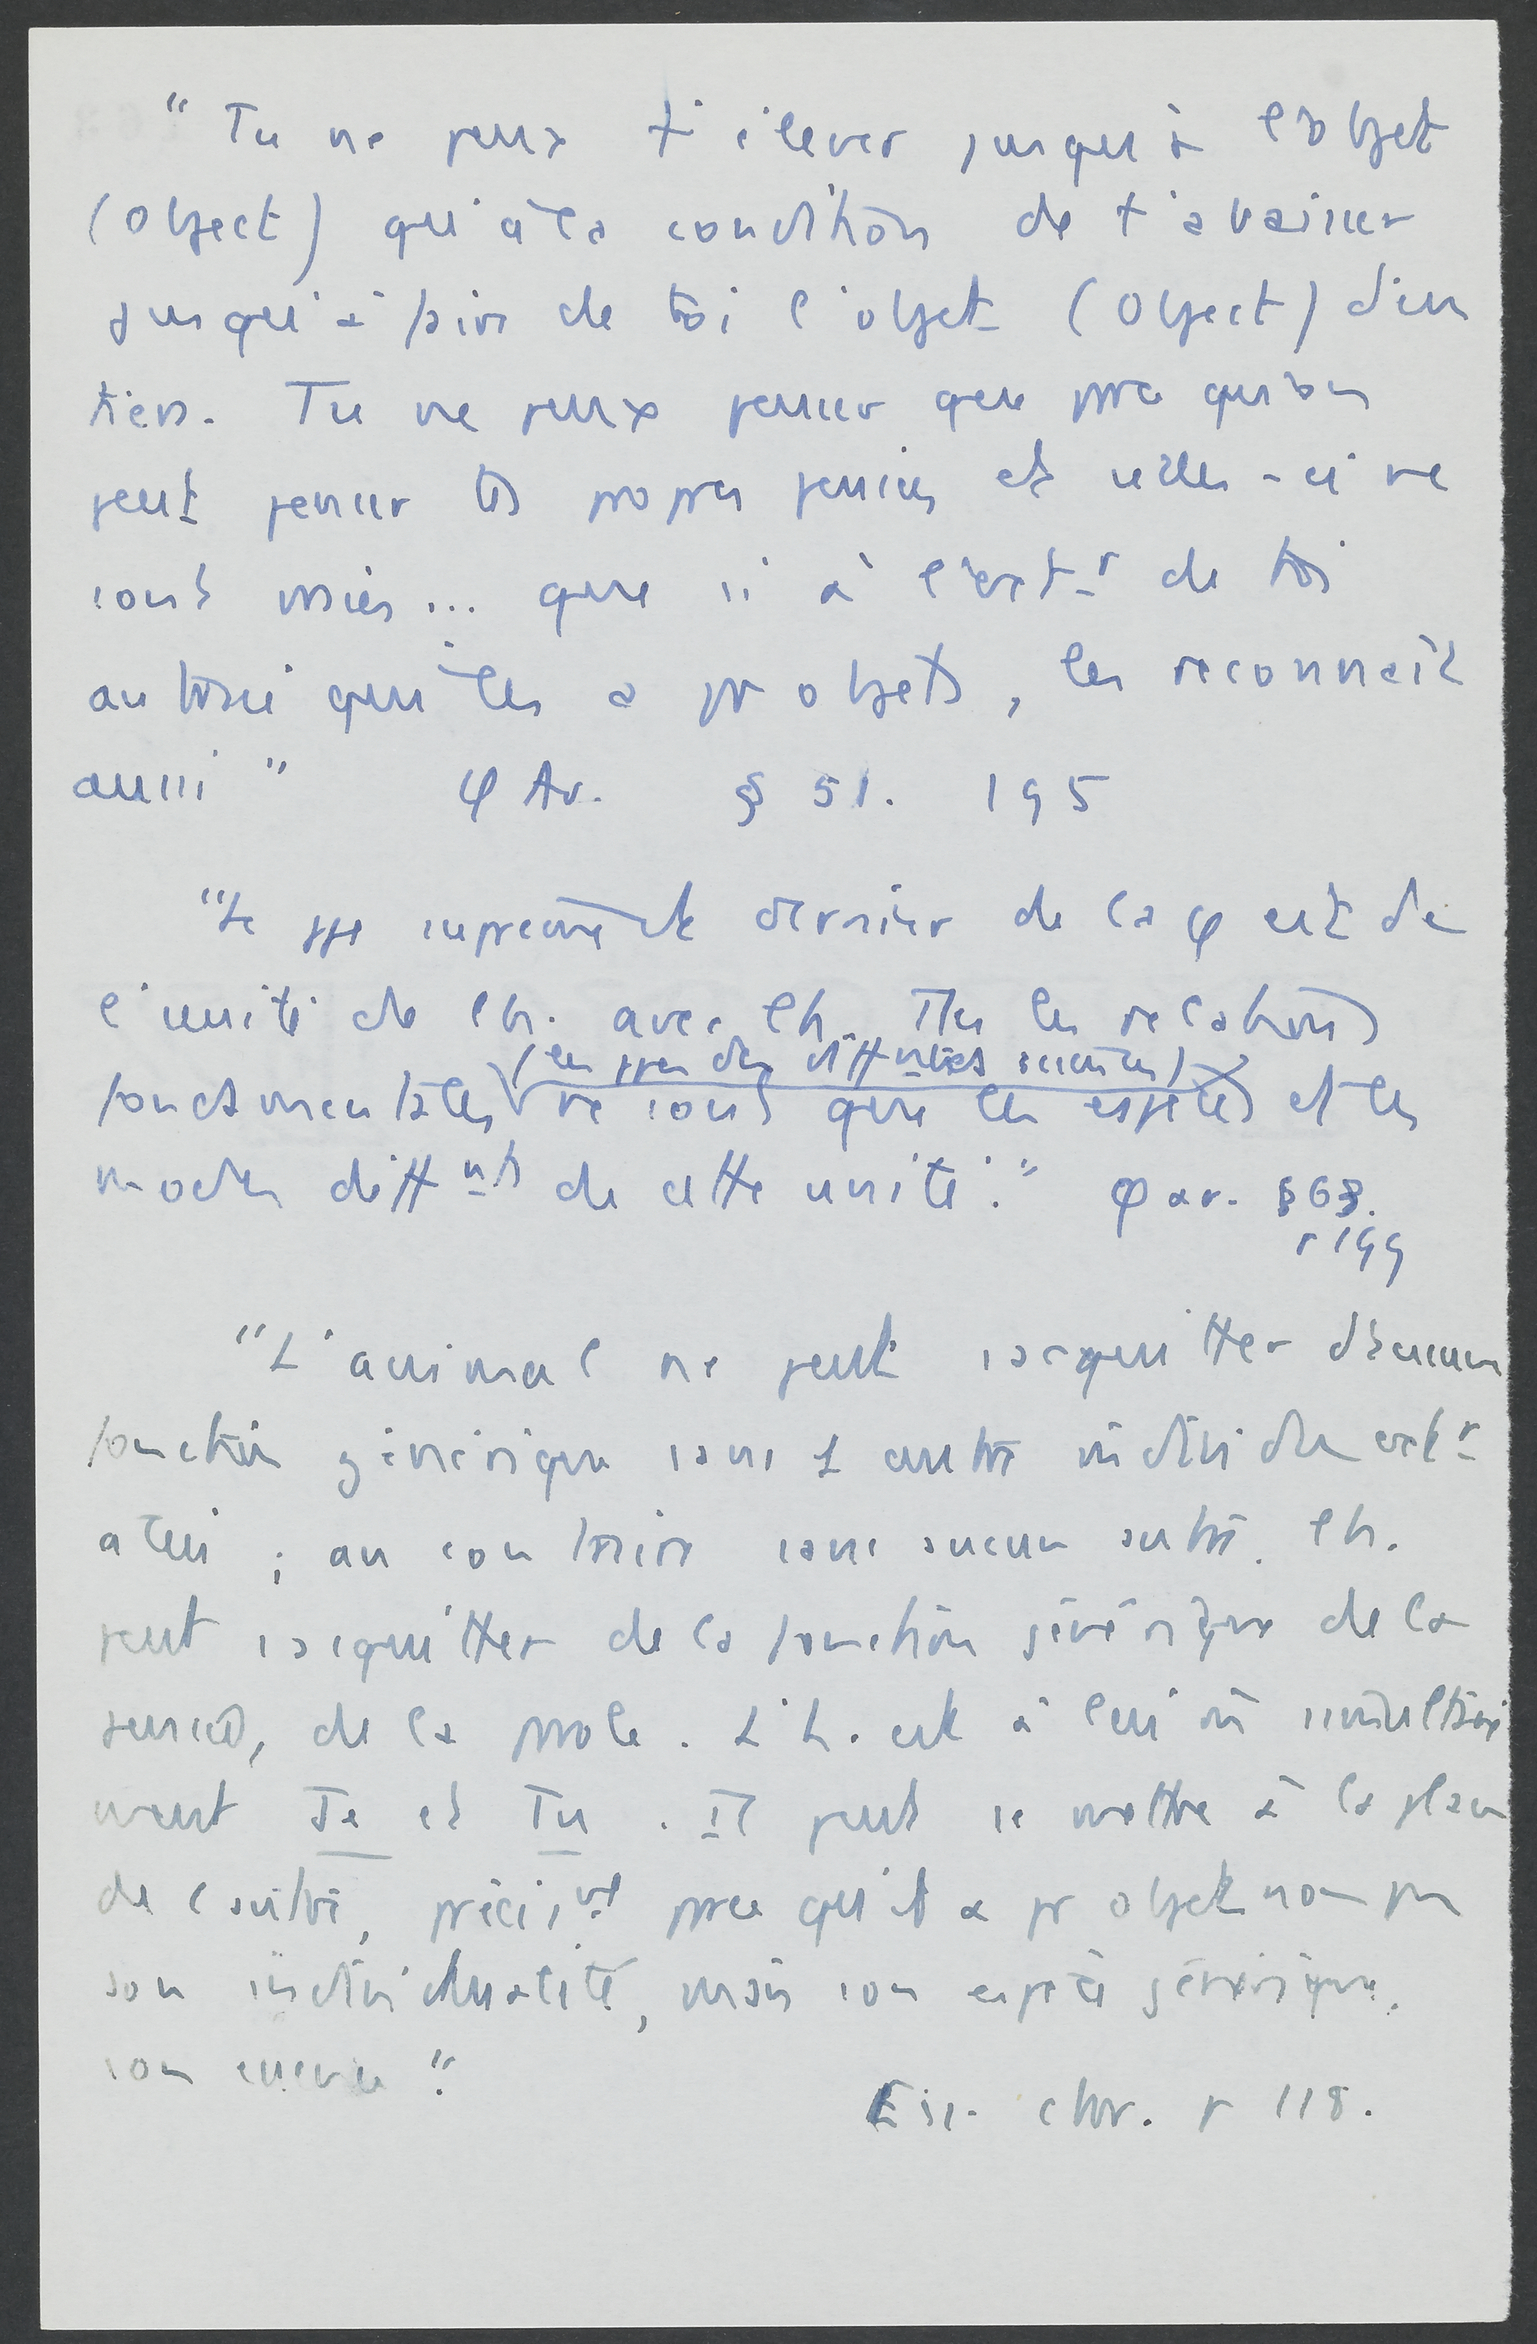 " Tu ne peux t'élever jusqu'à l'objet
(object) qu'à la condition de t'abaisser
jusqu'à faire de toi l'objet (object) d'un
tiers. Tu ne peux penser que pce qu'on
peut penser tes propres pensées et celles-ci ne
sont vraies... que si à l'extr de toi
autrui qui les a pr objets, les reconnaît
aussi " φ Av. § 51. 195
"Le ppe suprême et dernier de la φ est de
l'unité de l'h. avec l'h. Ttes les relations
(les ppes des difftes sciences)
fondamentales ne sont que les espèces et les
modes difftnts de cette unité." φ av. § 63.
p 199
"L'animal ne peut s'acquitter d'aucune
fonction générique sans 1 autre individu extr
à lui ; au contraire sans aucun autre l'h.
peut s'acquitter de la fonction générique de la
pensée, de la parole. L'h. est à lui-m simultané
ment Je et Tu. Il peut se mettre à la place
de l'autre, précismt pce qu'il a pr objet non pas
son individualité, mais son espèce générique,
son essence".
Ess. chr. p 118.